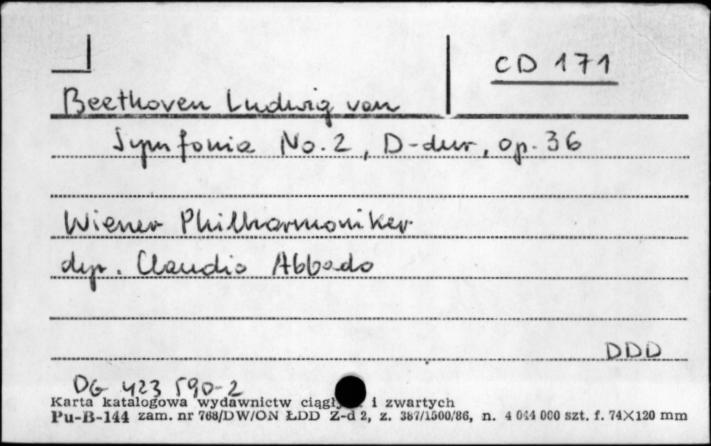 CD 171
Beethoven Ludwig van
Symfonia No. 2, D-dur, op. 36
Wiener Philharmoniker
dyr. Claudio Abbado
DDD
DG 423 590-2
Karta katalogowa wydawnictw ciągłych i zwartych
Pu-B-144 zam. nr 768/DW/ON ŁDD Z-d 2, z. 387/1500/86, n. 4 044 000 szt. f. 74×120 mm